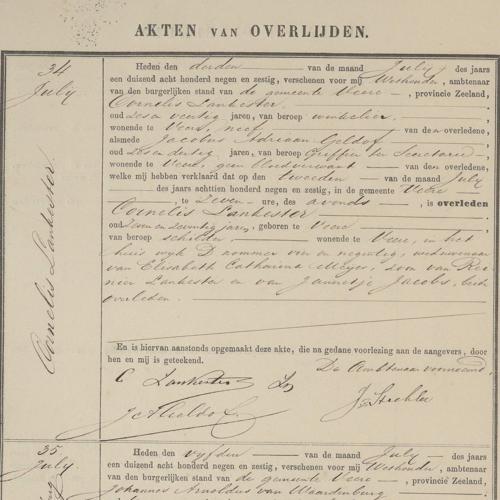 AKTEN VAN OVERLIJDEN.
34
July
Cornelis Lankester.
Heden den derden van de maand July des jaars
een duizend acht honderd negen en zestig, verschenen voor mij Wethouder, ambtenaar
van den burgerlijken stand van de gemeente Veere, provincie Zeeland,
Cornelis Lankester
oud zes en veertig jaren, van beroep winkelier,
wonende te Veere, neef van den overledene,
alsmede Jacobus Adriaan Geldof,
oud zes en dertig jaren, van beroep Griffier ter Secretarie
wonende te Veere, geen bloedverwant van den overledene,
welke mij hebben verklaard dat op den tweeden van de maand July
des jaars achttien honderd negen en zestig, in de gemeente Veere
, te zeven ure, des avonds, is overleden
Cornelis Lankester
oud zeven en zeventig jaren, geboren te Veere,
van beroep schilder wonende te Veere, in het
huis wijk D nommer vier en negentig, weduwenaar
van Elisabeth Catharina Meyer, zoon van Rei
nier Lankester en van Jannetje Jacobs, beide
overleden.
En is hiervan aanstonds opgemaakt deze akte, die na gedane voorlezing aan de aangevers, door
hen en mij is geteekend. De Ambtenaar voornoemd,
C Lankester
J A Geldof
35
July
Heden den vyfden van de maand July des jaars
een duizend acht honderd negen en zestig, verschenen voor mij Wethouder, ambtenaar
van den burgerlijken stand van de gemeente Veere, provincie Zeeland,
Johannes Arnoldus van Waardenburg